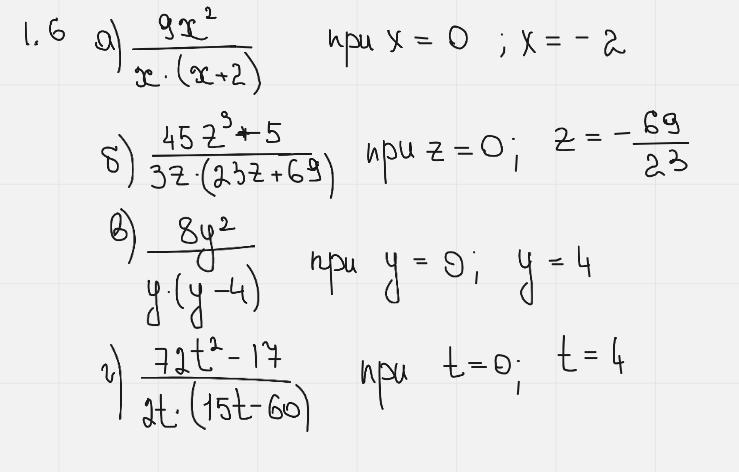 1.6 а) \frac{9x^2}{x·(x+2)} при x = 0 ; x = - 2
б) \frac{45z^3+5}{3z·(23z+69)} при z = 0; z = - \frac{69}{23}
в) \frac{8y^2}{y·(y-4)} при y = 0; y = 4
г) \frac{72t^2-17}{2t·(15t-60)} при t=0; t = 4